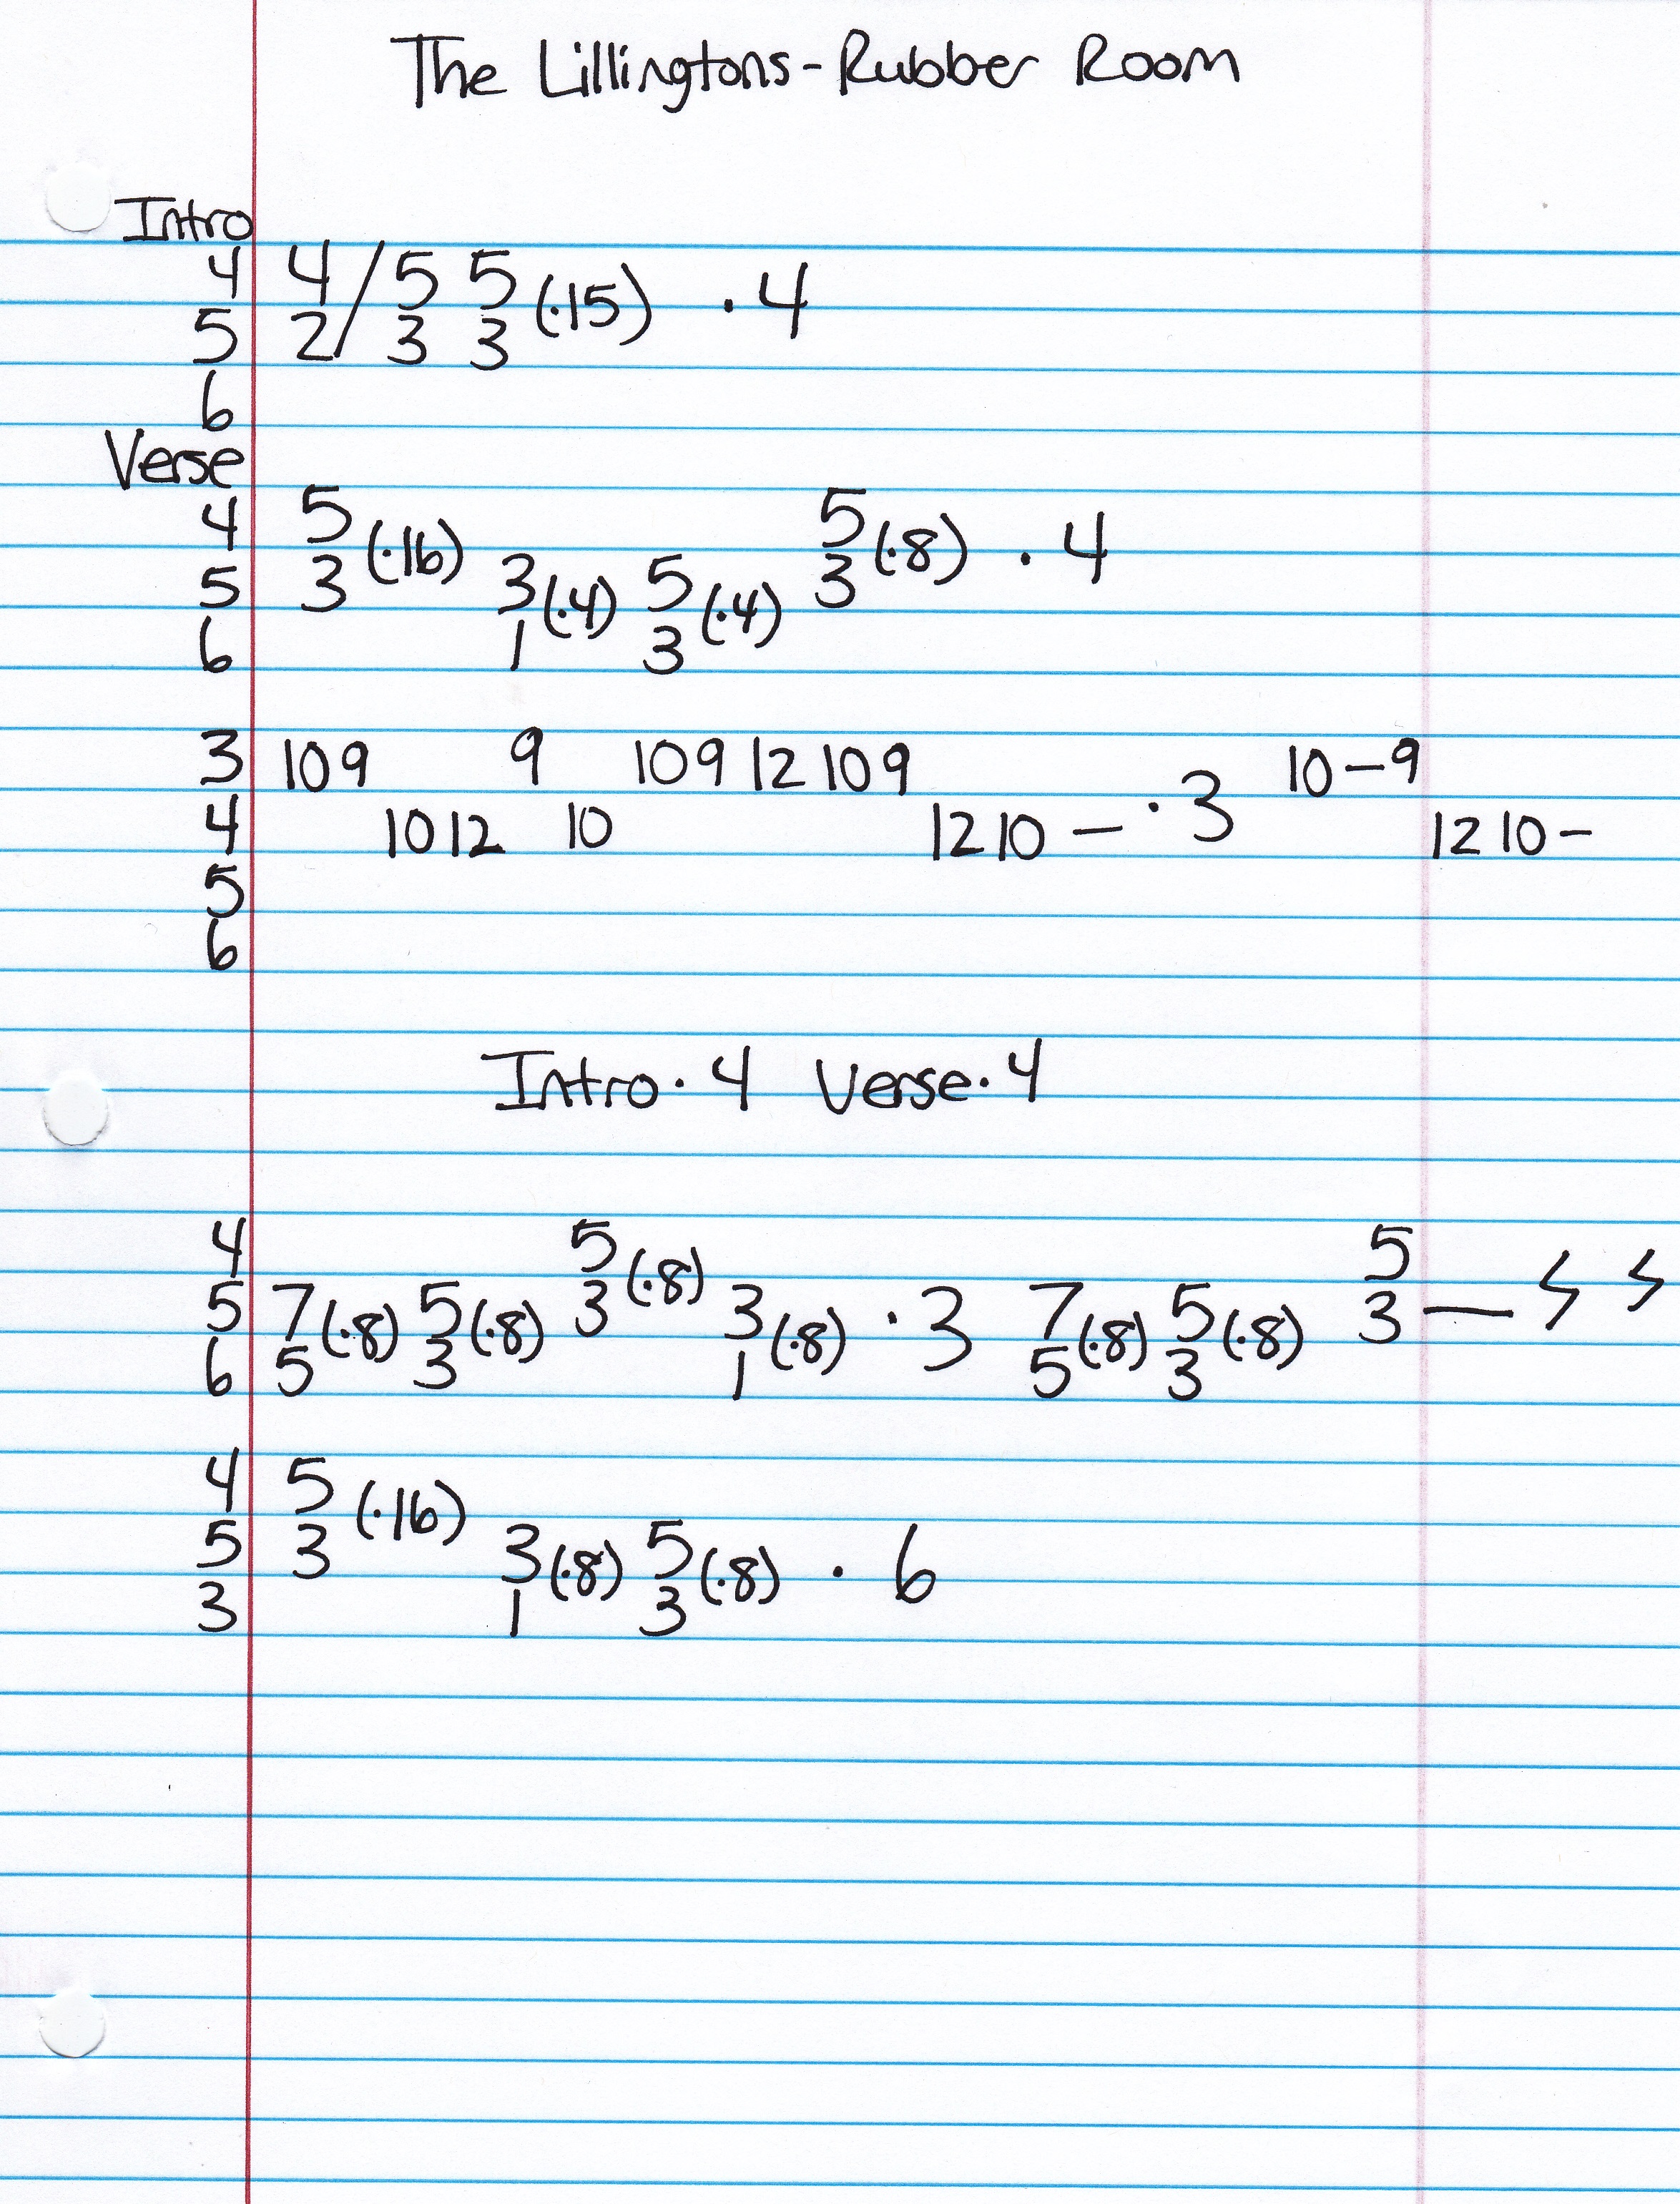 The Lillingtons - Rubber Room
Intro
4 4/5 5 (·15) · 4
5 2/3 3
6
Verse
4 5 (·16) 5 (·8) · 4
5 3 3 (·4) 5 (·4) 3
6 1 3
3 10 9 9 10 9 12 10 9 10 – 9
4 10 12 10 12 10 – · 3 12 10 –
5
6
Intro · 4 Verse · 4
4 5 (·8) 5
5 7 (·8) 5 (·8) 3 3 (·8) · 3 7 (·8) 5 (·8) 3 —
6 5 3 1 5 3
4 5 (·16)
5 3 3 (·8) 5 (·8) · 6
3 1 3